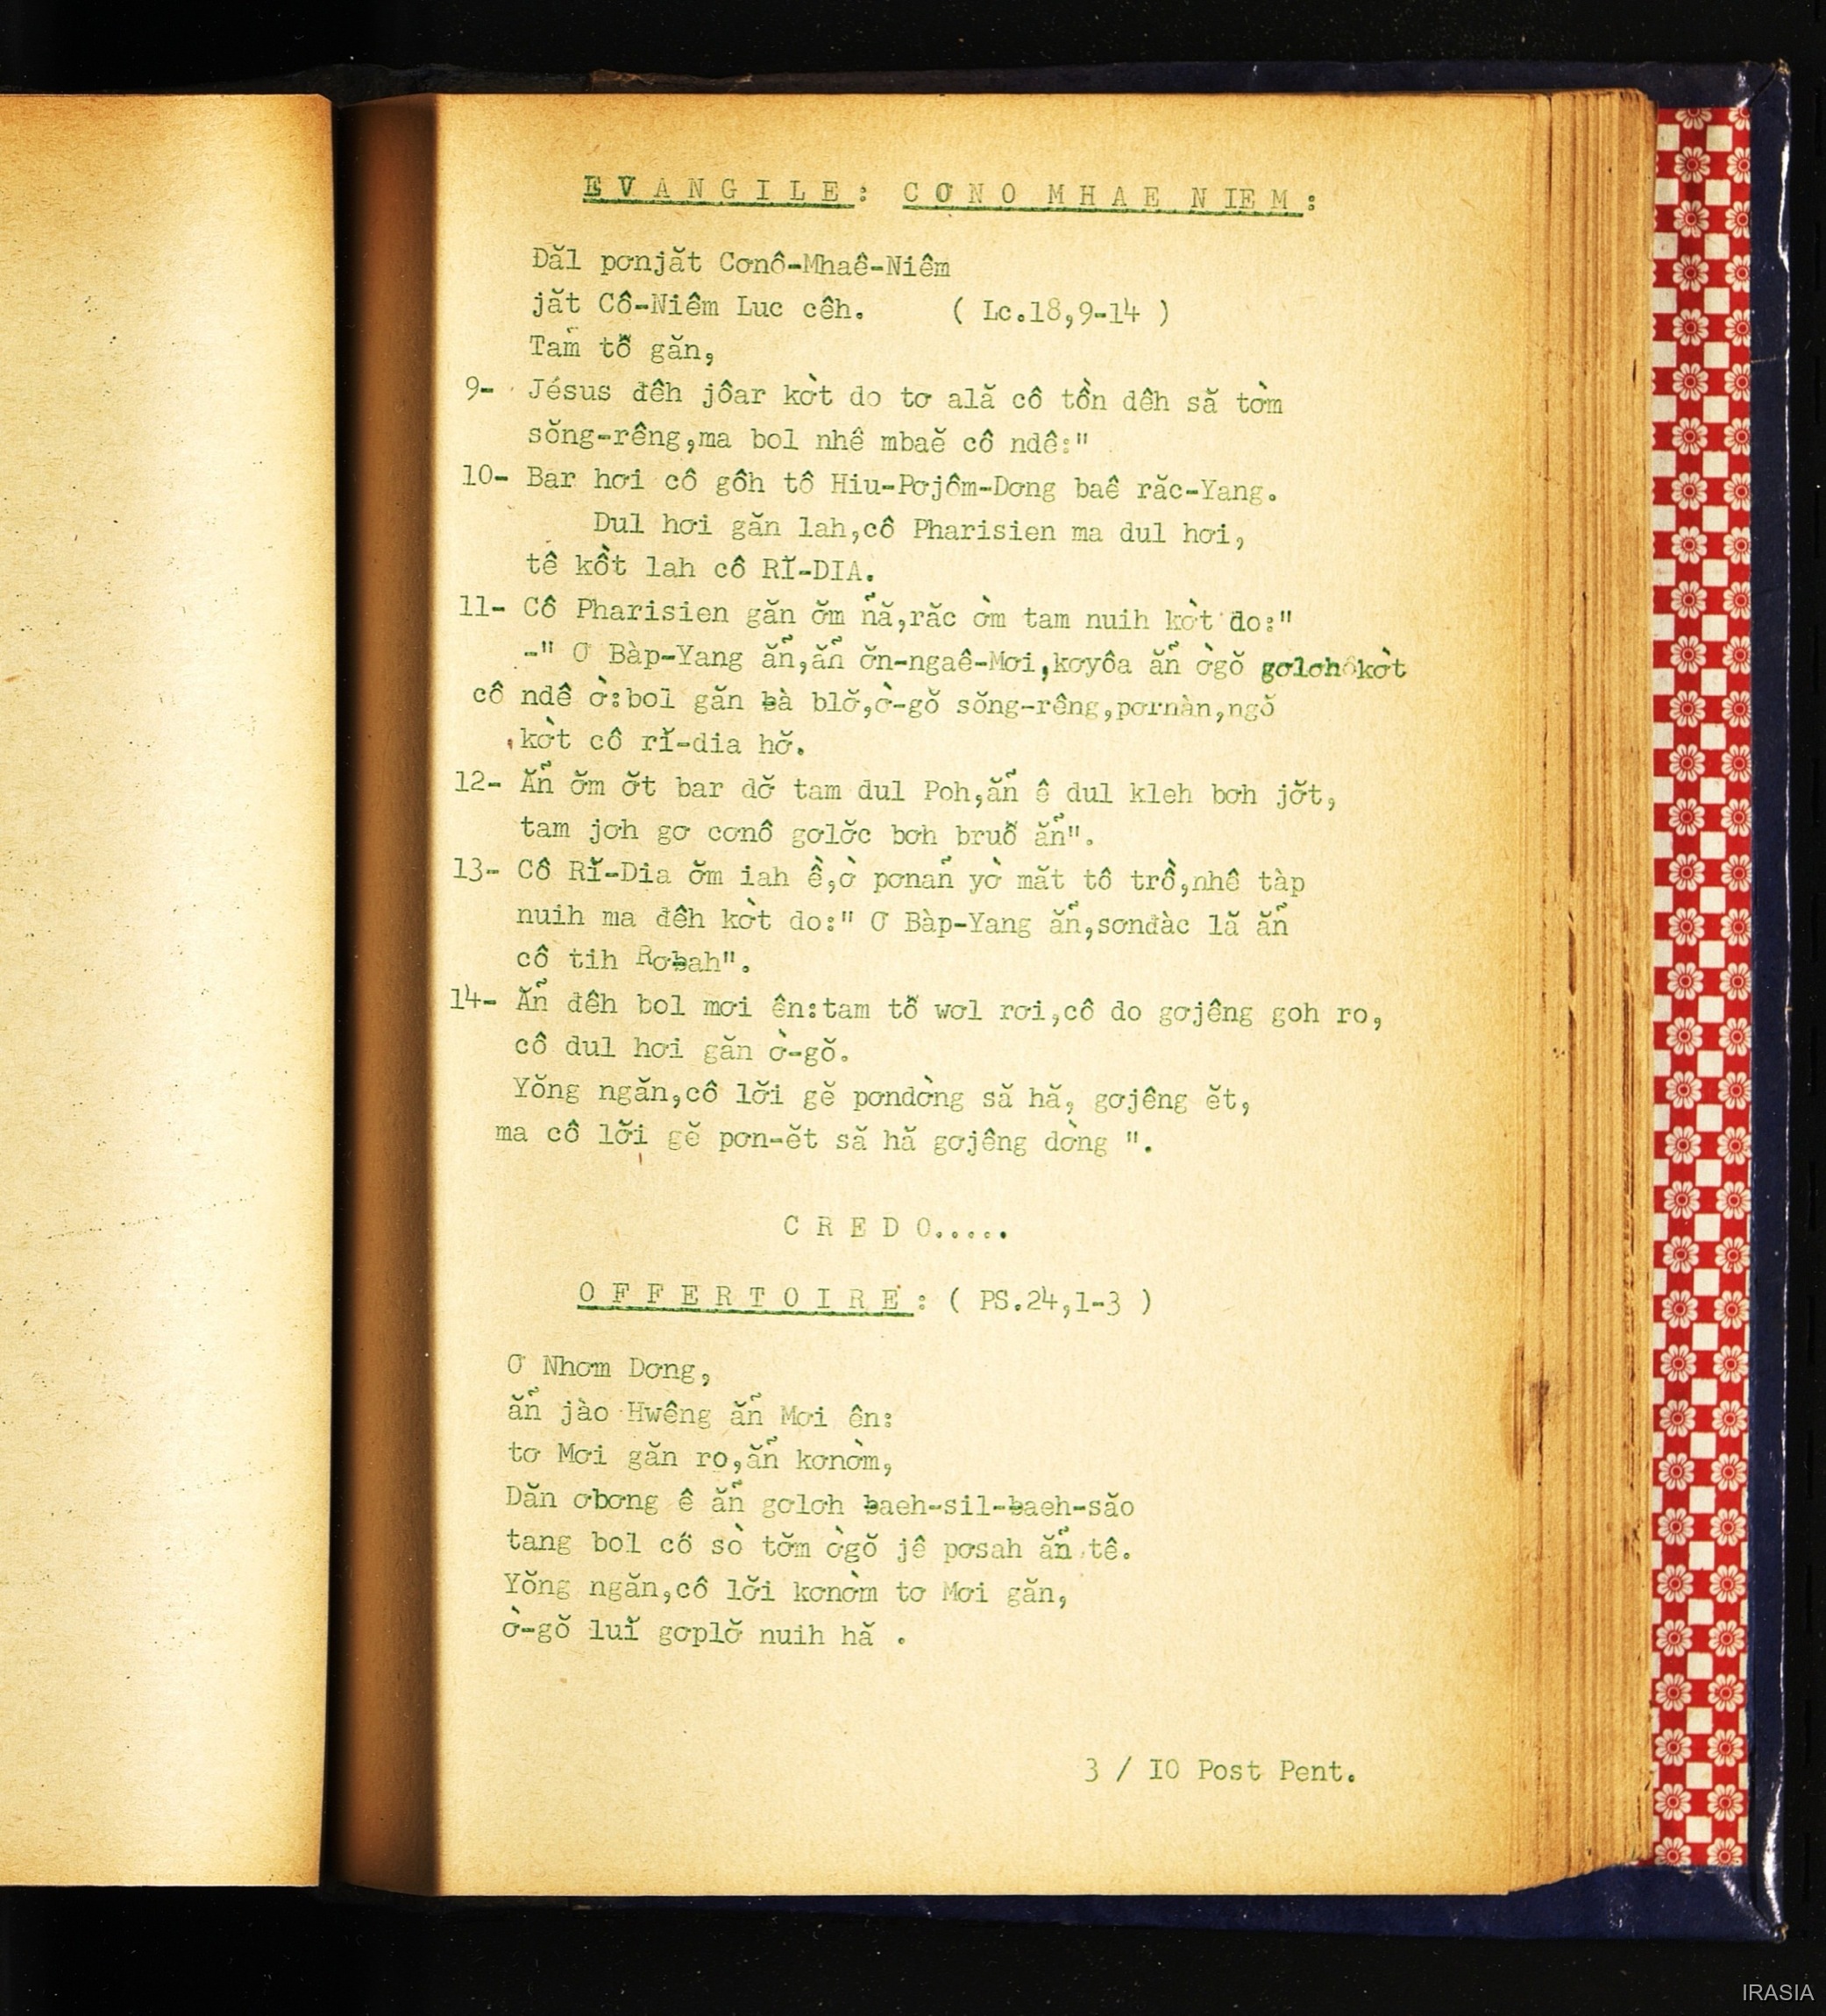 EVANGILE: CƠNO MHAE NIEM:
Đăl pơnjăt Cơnô-Mhaê-Niêm
jăt Cô-Niêm Luc cêh. ( Lc.18,9-14 )
Tam̆ tô̆ găn,
9- Jésus đêh jôar kờt do tơ ală cô tồn dêh să tờm
sŏng-rêng,ma bol nhê mbaĕ cô ndê:"
10- Bar hơi cô gôh tô Hiu-Pơjôm-Dơng baê răc-Yang.
Dul hơi găn lah,cô Pharisien ma dul hơi,
tê kồt lah cô RĬ-DIA.
11- Cô Pharisien găn ơ̆m n̆ă,răc ờm tam nuih kờt do:"
-" Ơ Bàp-Yang ăn̆,ăn̆ ơ̆n-ngaê-Mơi,kơyôa ăn̆ ờgŏ gơlơhôkờt
cô ndê ờ:bol găn ƀà blơ̆,ờ-gŏ sŏng-rêng,pơrnàn,ngŏ
kờt cô rĭ-dia hơ̆.
12- Ăn̆ ơ̆m ơ̆t bar dơ̆ tam dul Poh,ăn̆ ê dul kleh bơh jơ̆t,
tam jơh gơ cơnô gơlơ̆c bơh bruô̆ ăn̆".
13- Cô Rĭ-Dia ơ̆m iah ề,ờ pơnan̆ yờ măt tô trồ,nhê tàp
nuih ma đêh kờt do:" Ơ Bàp-Yang ăn̆,sơnđàc lă ăn̆
cô tih Rơƀah".
14- Ăn̆ đêh bol mơi ên:tam tô̆ wơl rơi,cô do gơjêng goh ro,
cô dul hơi găn ờ-gŏ.
Yŏng ngăn,cô lơ̆i gĕ pơndờng să hă, gơjêng ĕt,
ma cô lơ̆i gĕ pơn-ĕt să hă gơjêng dờng ".
CREDO.....
OFFERTOIRE: ( PS.24,1-3 )
Ơ Nhơm Dơng,
ăn̆ jào Hwêng ăn̆ Mơi ên:
tơ Mơi găn ro,ăn̆ kơnờm,
Dăn ơbơng ê ăn̆ gơlơh ƀaeh-sil-ƀaeh-săo
tang bol cô̆ sò tơ̆m ờgŏ jê pơsah ăn̆ tê.
Yŏng ngăn,cô lơ̆i kơnờm tơ Mơi găn,
ờ-gŏ luĭ gơplơ̆ nuih hă .
3 / IO Post Pent.
IRASIA